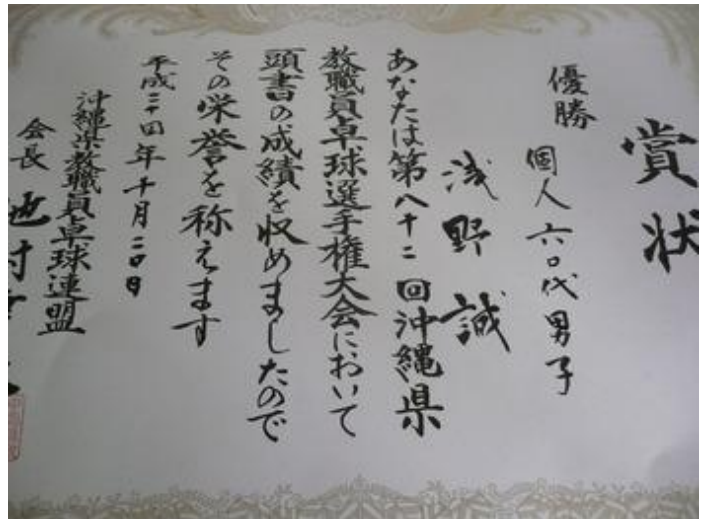 賞状
優勝
個人六〇代男子
浅野誠
あなたは第八十二回沖縄県
教職員卓球選手権大会において
頭書の成績を収めましたので
その栄誉を称えます
平成二十四年十月二〇日
沖縄県教職員卓球連盟
会長 池村